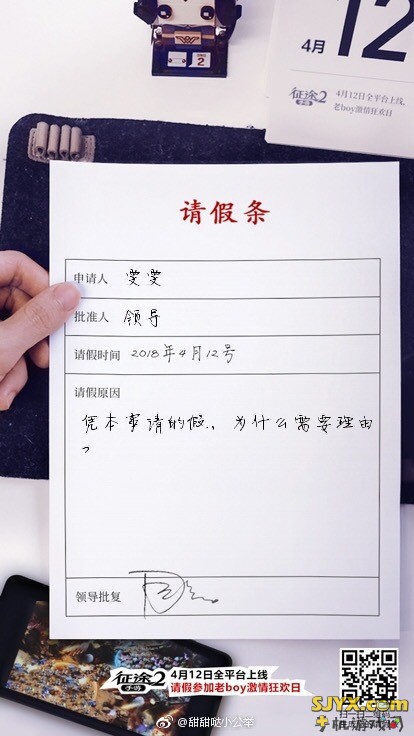 4月
12
征途2
手游
4月12日全平台上线
老boy激情狂欢日
请假条
申请人 雯雯
批准人 领导
请假时间 2018年4月12号
请假原因
凭本事请的假，为什么需要理由
?
领导批复
征途2
手游
4月12日全平台上线
请假参加老boy激情狂欢日
@甜甜哒小公举
SJYX.com
手机游戏网